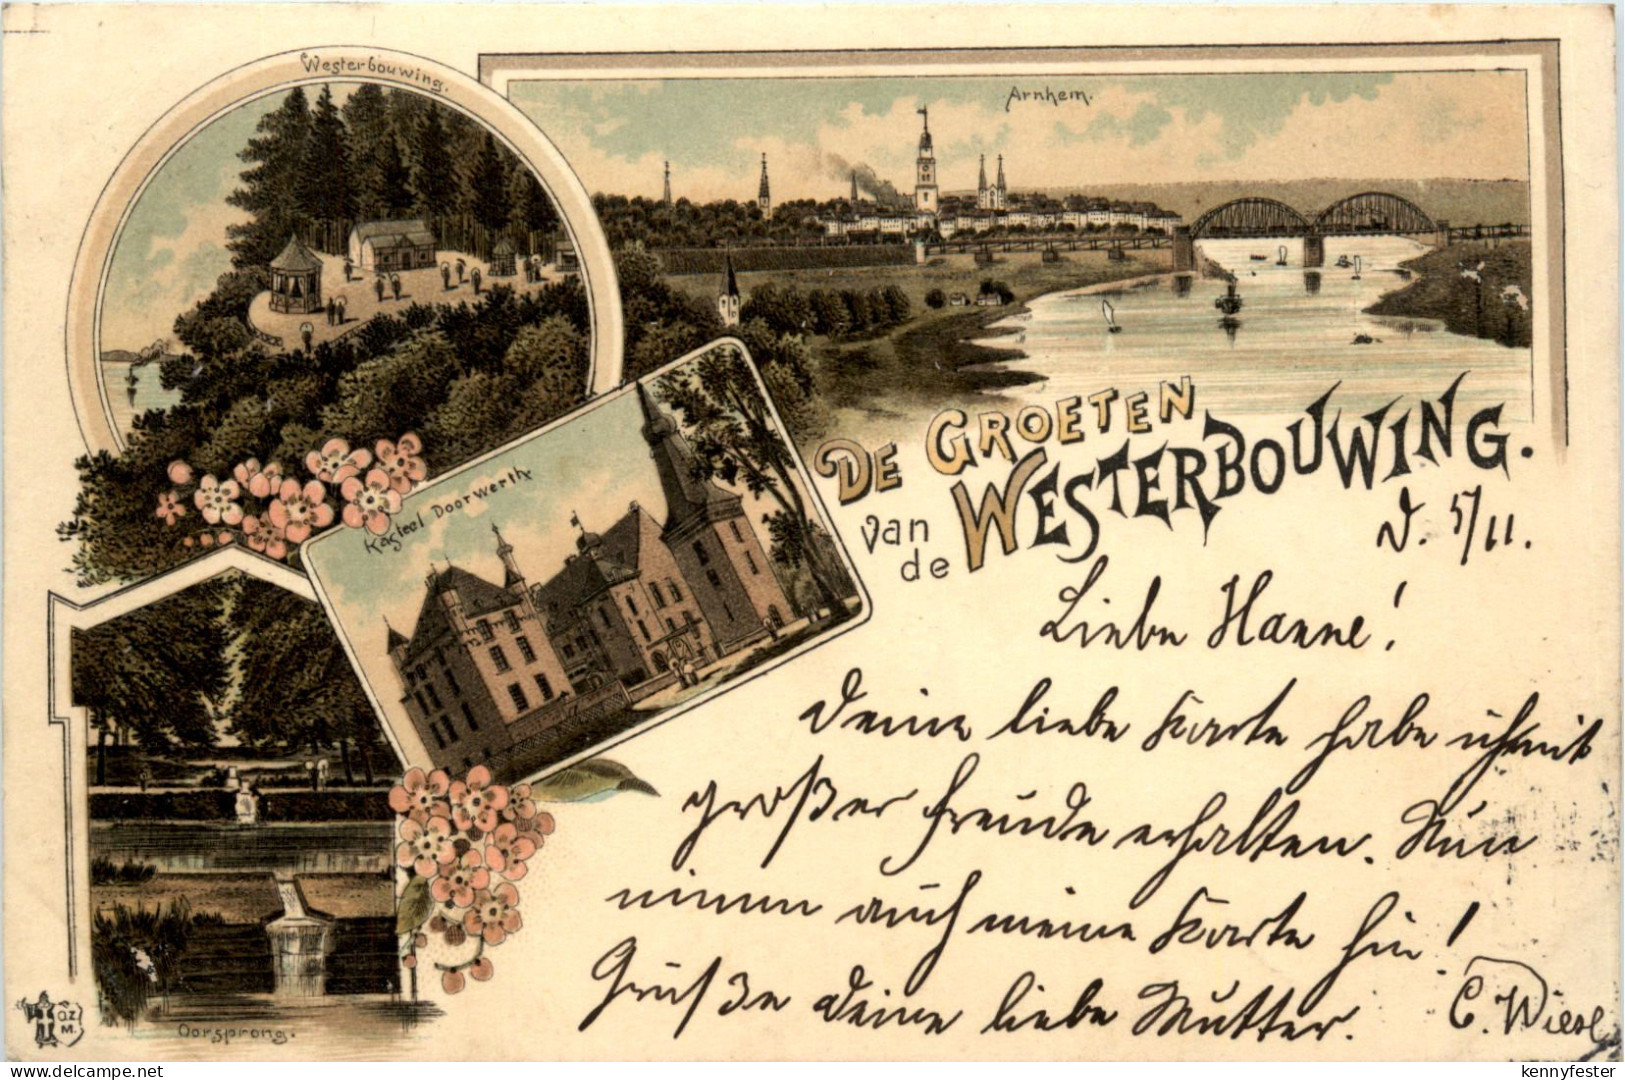 Westerbouwing.
Arnhem.
Kasteel Doorwerth
DE GROETEN
van de WESTERBOUWING.
D. 5/11.
Liebe Hanne!
Deine liebe Karte habe ich mit
großer Freude erhalten. Nun
nimm auch meine Karte hin!
Grüße Deine liebe Mutter. C. Wiese
Oorsprong.
O.Z.
M.
delcampe.net
kennyfester